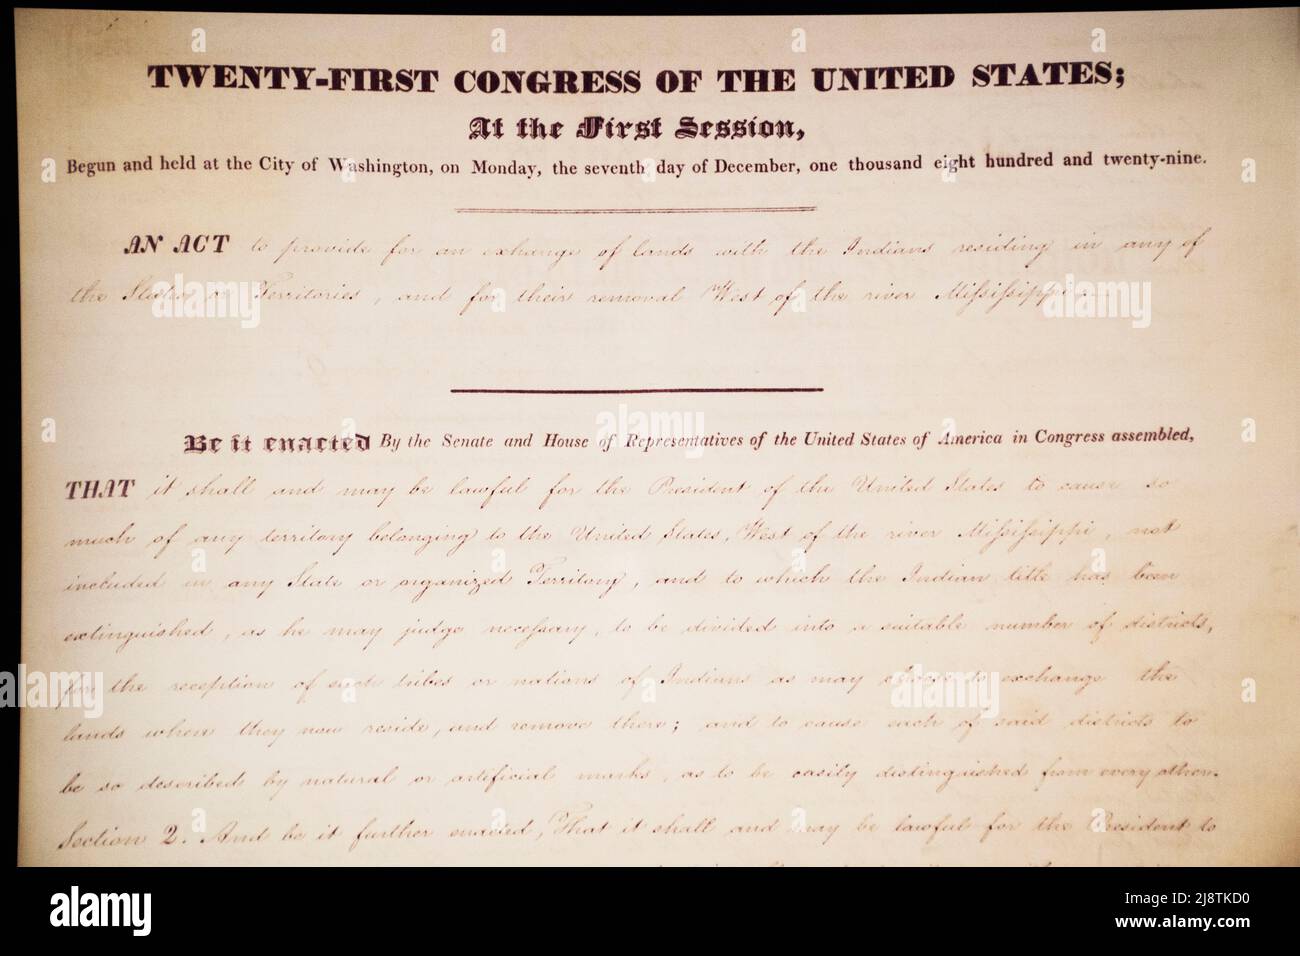 TWENTY-FIRST CONGRESS OF THE UNITED STATES;
At the First Session,
Begun and held at the City of Washington, on Monday, the seventh day of December, one thousand eight hundred and twenty-nine.
AN ACT to provide for an exchange of lands with the Indians residing in any of
the States or Territories, and for their removal West of the river Mississippi.
Be it enacted By the Senate and House of Representatives of the United States of America in Congress assembled,
THAT it shall and may be lawful for the President of the United States to cause so
much of any territory belonging to the United States, West of the river Mississippi, not
included in any State or organized Territory, and to which the Indian title has been
extinguished, as he may judge necessary, to be divided into a suitable number of districts,
for the reception of such tribes or nations of Indians as may choose to exchange the
lands where they now reside, and remove there; and to cause each of said districts to
be so described by natural or artificial marks, as to be easily distinguished from every other.
Section 2. And be it further enacted, That it shall and may be lawful for the President to
alamy
Image ID: 2J8TKD0
www.alamy.com